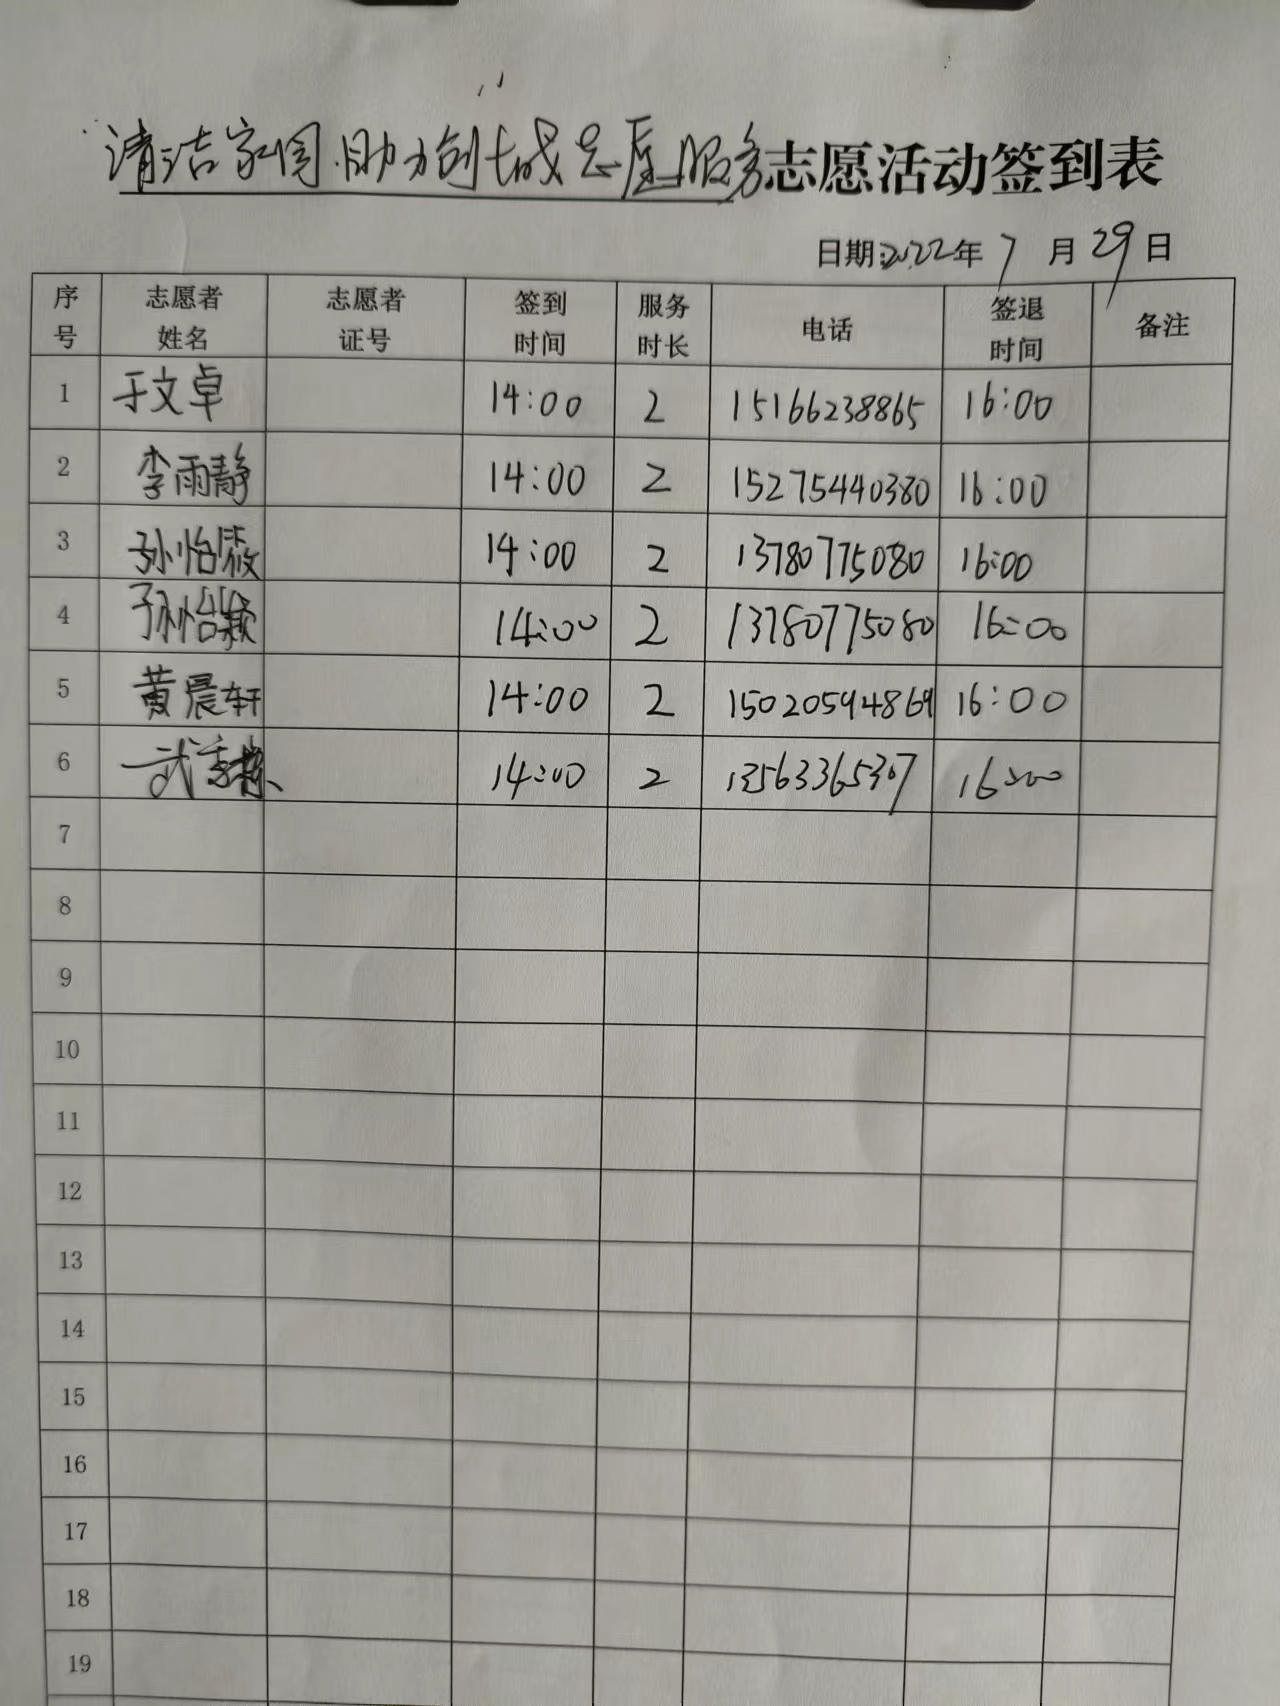 清洁家园.助力创城志愿服务志愿活动签到表
日期:2022年7月29日
序号 志愿者姓名 志愿者证号 签到时间 服务时长 电话 签退时间 备注
1 于文卓 14:00 2 15166238865 16:00
2 李雨静 14:00 2 15275440380 16:00
3 孙怡 14:00 2 13780775080 16:00
4 孙怡颖 14:00 2 13780775080 16:00
5 黄晨轩 14:00 2 15020594869 16:00
6 武 14:00 2 13563365307 16:00
7
8
9
10
11
12
13
14
15
16
17
18
19